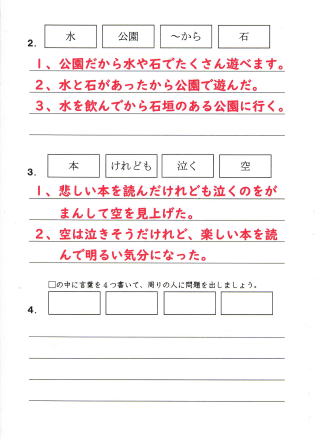 2. 水 公園 〜から 石
1、公園だから水や石でたくさん遊べます。
2、水と石があったから公園で遊んだ。
3、水を飲んでから石垣のある公園に行く。
3. 本 けれども 泣く 空
1、悲しい本を読んだけれども泣くのをが
まんして空を見上げた。
2、空は泣きそうだけれど、楽しい本を読
んで明るい気分になった。
□の中に言葉を4つ書いて、周りの人に問題を出しましょう。
4.